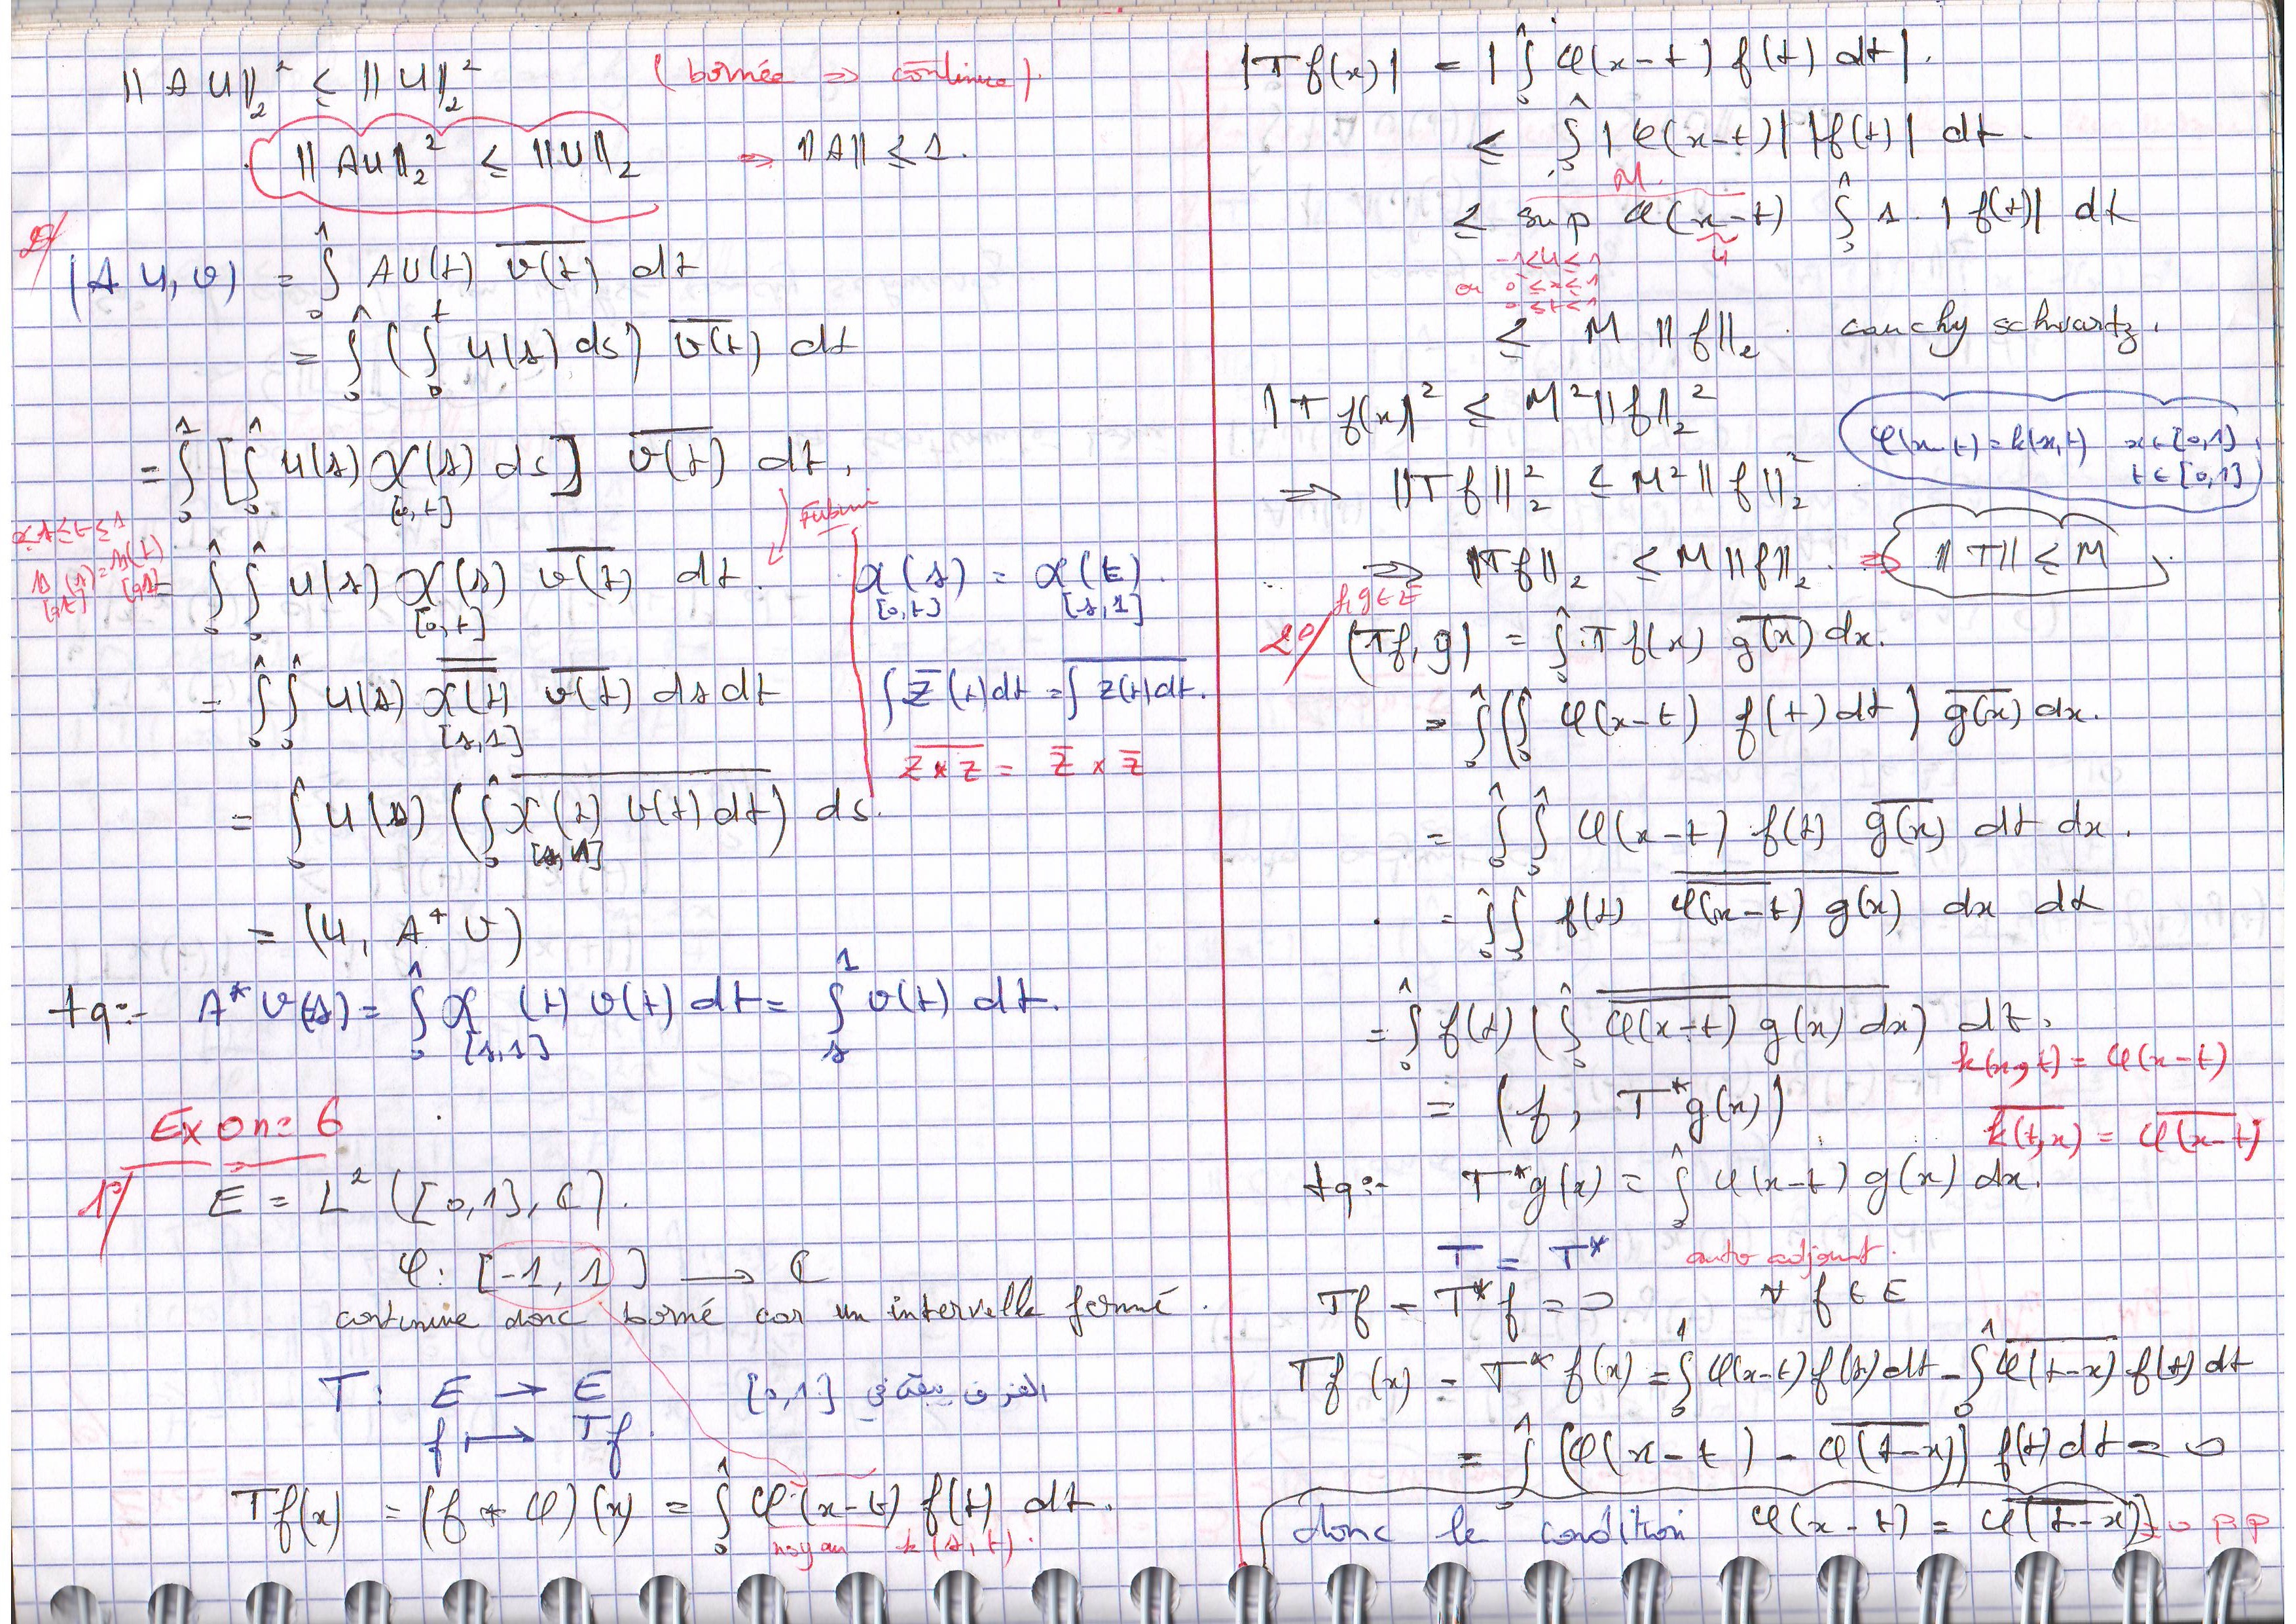 ‖AU‖₂² ≤ ‖U‖₂² (bornée ⇒ continue).
‖AU‖₂² ≤ ‖U‖₂ ⇒ ‖A‖ ≤ 1.
2°/
(AU, v) = ∫₀¹ AU(t) \overline{v(t)} dt
= ∫₀¹ (∫₀ᵗ u(s) ds) \overline{v(t)} dt
= ∫₀¹ [∫₀¹ u(s) χ_{[0,t]}(s) ds] \overline{v(t)} dt,
Fubini
0≤s≤t≤1
= ∫₀¹ ∫₀¹ u(s) χ_{[0,t]}(s) \overline{v(t)} dt. χ_{[0,t]}(s) = χ_{[s,1]}(t).
= ∫₀¹ ∫₀¹ u(s) \overline{\overline{χ_{[s,1]}(t)}} \overline{v(t)} ds dt
∫ \overline{z}(t) dt = \overline{∫ z(t) dt}.
\overline{z × z} = \overline{z} × \overline{z}
= ∫₀¹ u(s) (\overline{∫₀¹ χ_{[s,1]}(t) v(t) dt}) ds.
= (U, A* v)
tq:- A* v(s) = ∫₀¹ χ_{[s,1]}(t) v(t) dt = ∫ₛ¹ v(t) dt.
Exo n= 6
1°/ E = L² ([0,1], ℂ).
φ: [-1, 1] → ℂ
continue donc borné car un intervelle fermé.
T: E → E [0,1]
f ↦ Tf.
Tf(x) = (f * φ)(x) = ∫₀¹ φ(x-t) f(t) dt.
noyau k(s,t).
|Tf(x)| = |∫₀¹ φ(x-t) f(t) dt|.
≤ ∫₀¹ |φ(x-t)| |f(t)| dt.
M.
≤ sup φ(x-t) ∫₀¹ 1. |f(t)| dt
-1≤u≤1 u
ou 0≤x≤1
0≤t≤1
≤ M ‖f‖₂. cauchy schwartz.
|Tf(x)|² ≤ M² ‖f‖₂²
φ(x-t) = k(x,t) x∈[0,1],
t∈[0,1]
⇒ ‖Tf‖₂² ≤ M² ‖f‖₂²
⇒ ‖Tf‖₂ ≤ M ‖f‖₂. ⇒ ‖T‖ ≤ M
f,g∈E
2°/ (Tf, g) = ∫₀¹ Tf(x) \overline{g(x)} dx.
= ∫₀¹ (∫₀¹ φ(x-t) f(t) dt) \overline{g(x)} dx.
= ∫₀¹ ∫₀¹ φ(x-t) f(t) \overline{g(x)} dt dx.
= ∫₀¹ ∫₀¹ f(t) \overline{\overline{φ(x-t)} g(x)} dx dt
= ∫₀¹ f(t) (\overline{∫₀¹ \overline{φ(x-t)} g(x) dx}) dt.
k(x,t) = φ(x-t)
= (f, T*g(x))
\overline{k(t,x)} = \overline{φ(x-t)}
tq:- T*g(x) = ∫₀¹ φ(x-t) g(x) dx.
T = T* auto adjoint.
Tf - T*f = 0 ∀ f ∈ E
Tf(x) - T*f(x) = ∫₀¹ φ(x-t) f(t) dt - ∫₀¹ \overline{φ(t-x)} f(t) dt
= ∫₀¹ (φ(x-t) - \overline{φ(t-x)}) f(t) dt = 0
donc le condition φ(x-t) = \overline{φ(t-x)} = 0 p.p